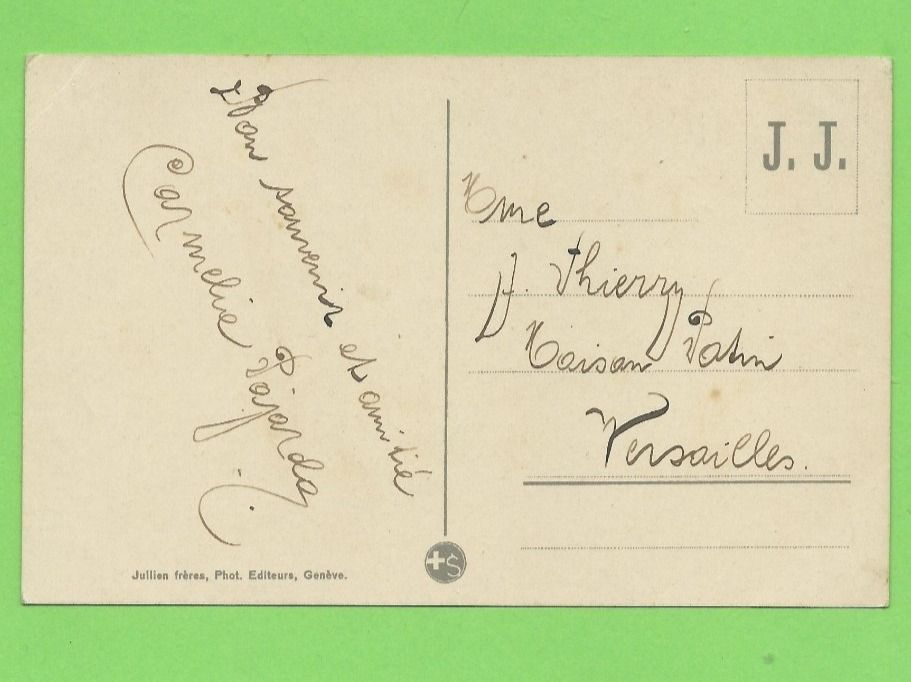 Bon souvenir et amitié
Carmeline
J. J.
Mme
A. Thierry
Maison Patin
Versailles.
Jullien frères, Phot. Editeurs, Genève.
+S